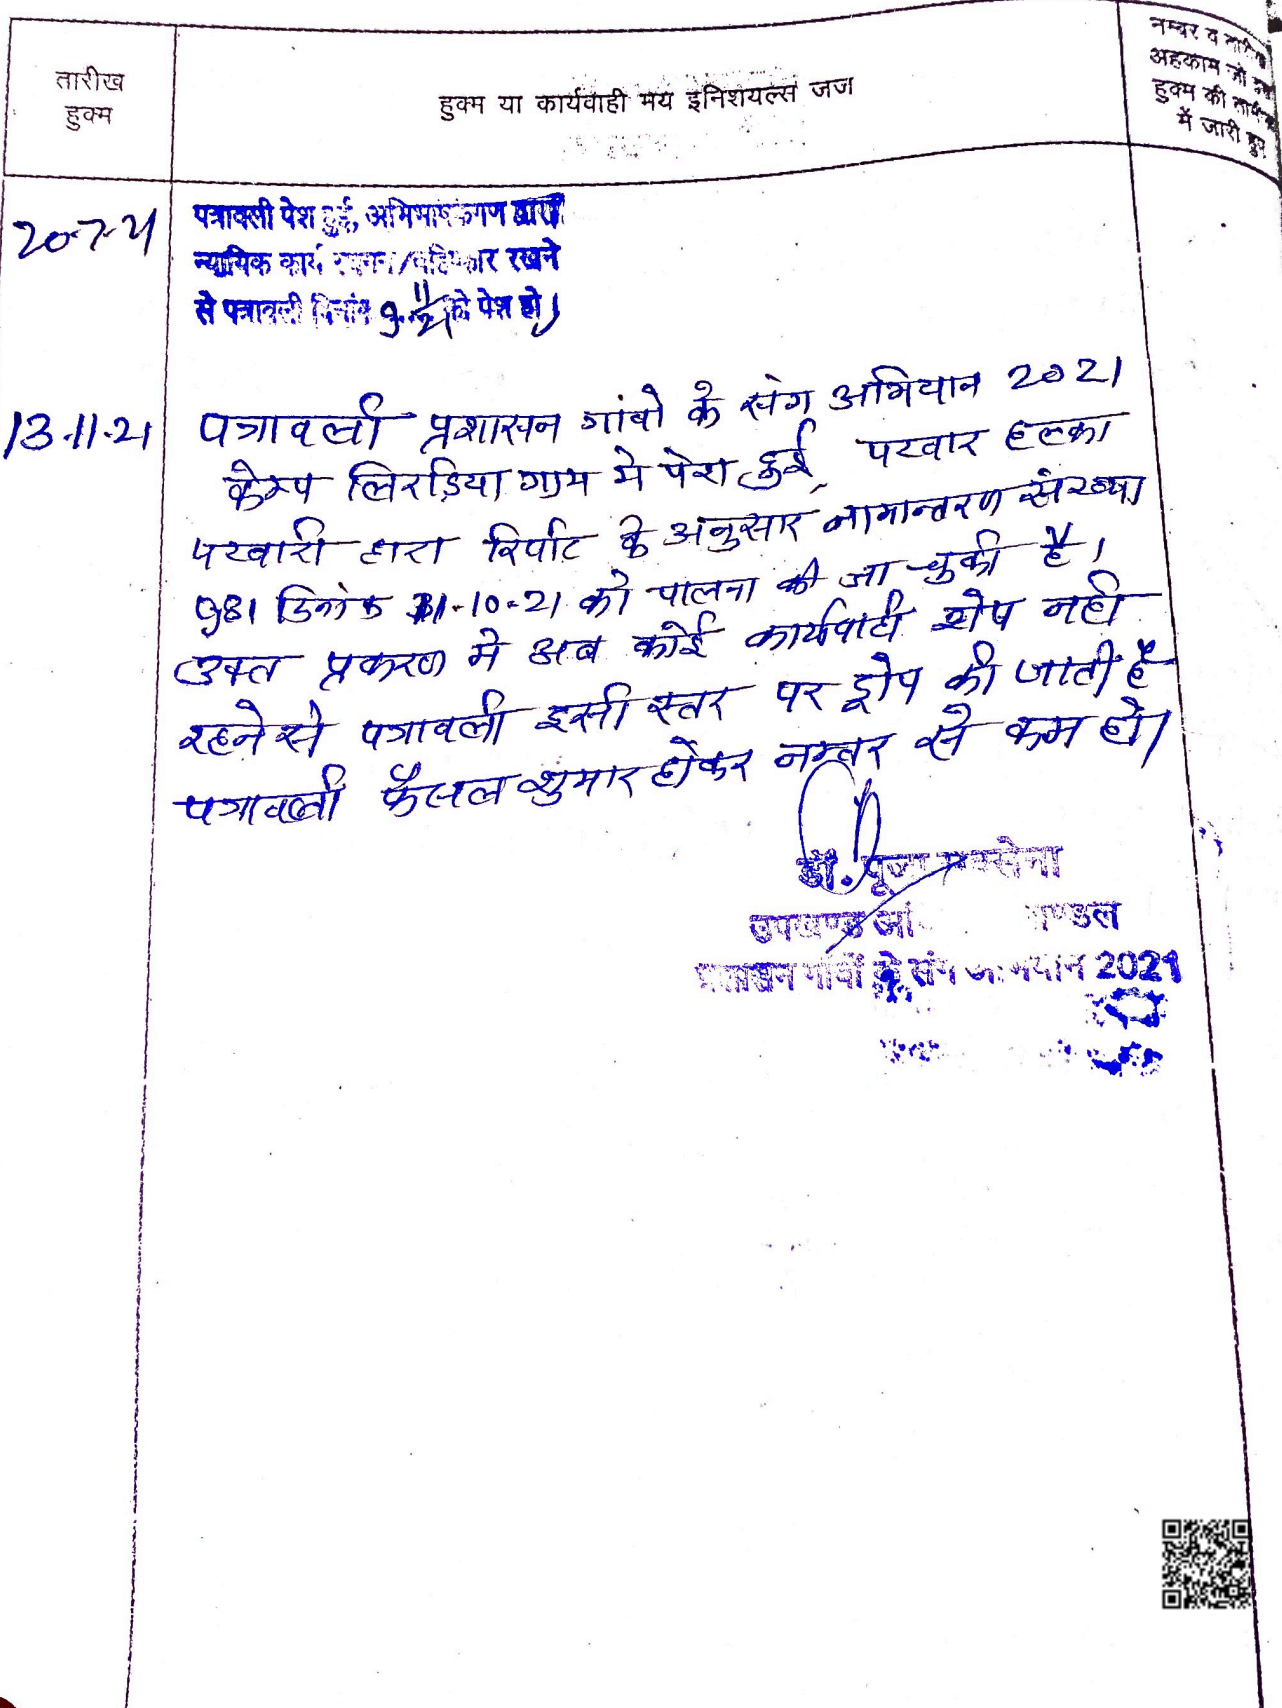 तारीख
हुक्म
हुक्म या कार्यवाही मय इनिशयल्स जज
नम्बर व
अहकाम जो
हुक्म की
में जारी हुए
20-7-21
पत्रावली पेश हुई, अभिभाषकगण द्वारा
न्यायिक कार्य स्थगन/बहिष्कार रखने
से पत्रावली दिनांक 9-11-21 को पेश हो।
13-11-21
पत्रावली प्रशासन गांवो के संग अभियान 2021
केम्प लिरडिया गाम मे पेश हुई, पटवार हल्का
पटवारी द्वारा रिर्पोट के अनुसार नामान्तरण संख्या
981 दिनांक 31-10-21 को पालना की जा चुकी है।
उक्त प्रकरण मे अब कोई कार्यवाही शेष नही
रहने से पत्रावली इसी स्तर पर ड्रोप की जाती है
पत्रावली फैसल शुमार होकर नम्बर से कम हो।
डॉ. पूजा सक्सेना
उपखण्ड
प्रशासन गांवों के संग अभियान 2021